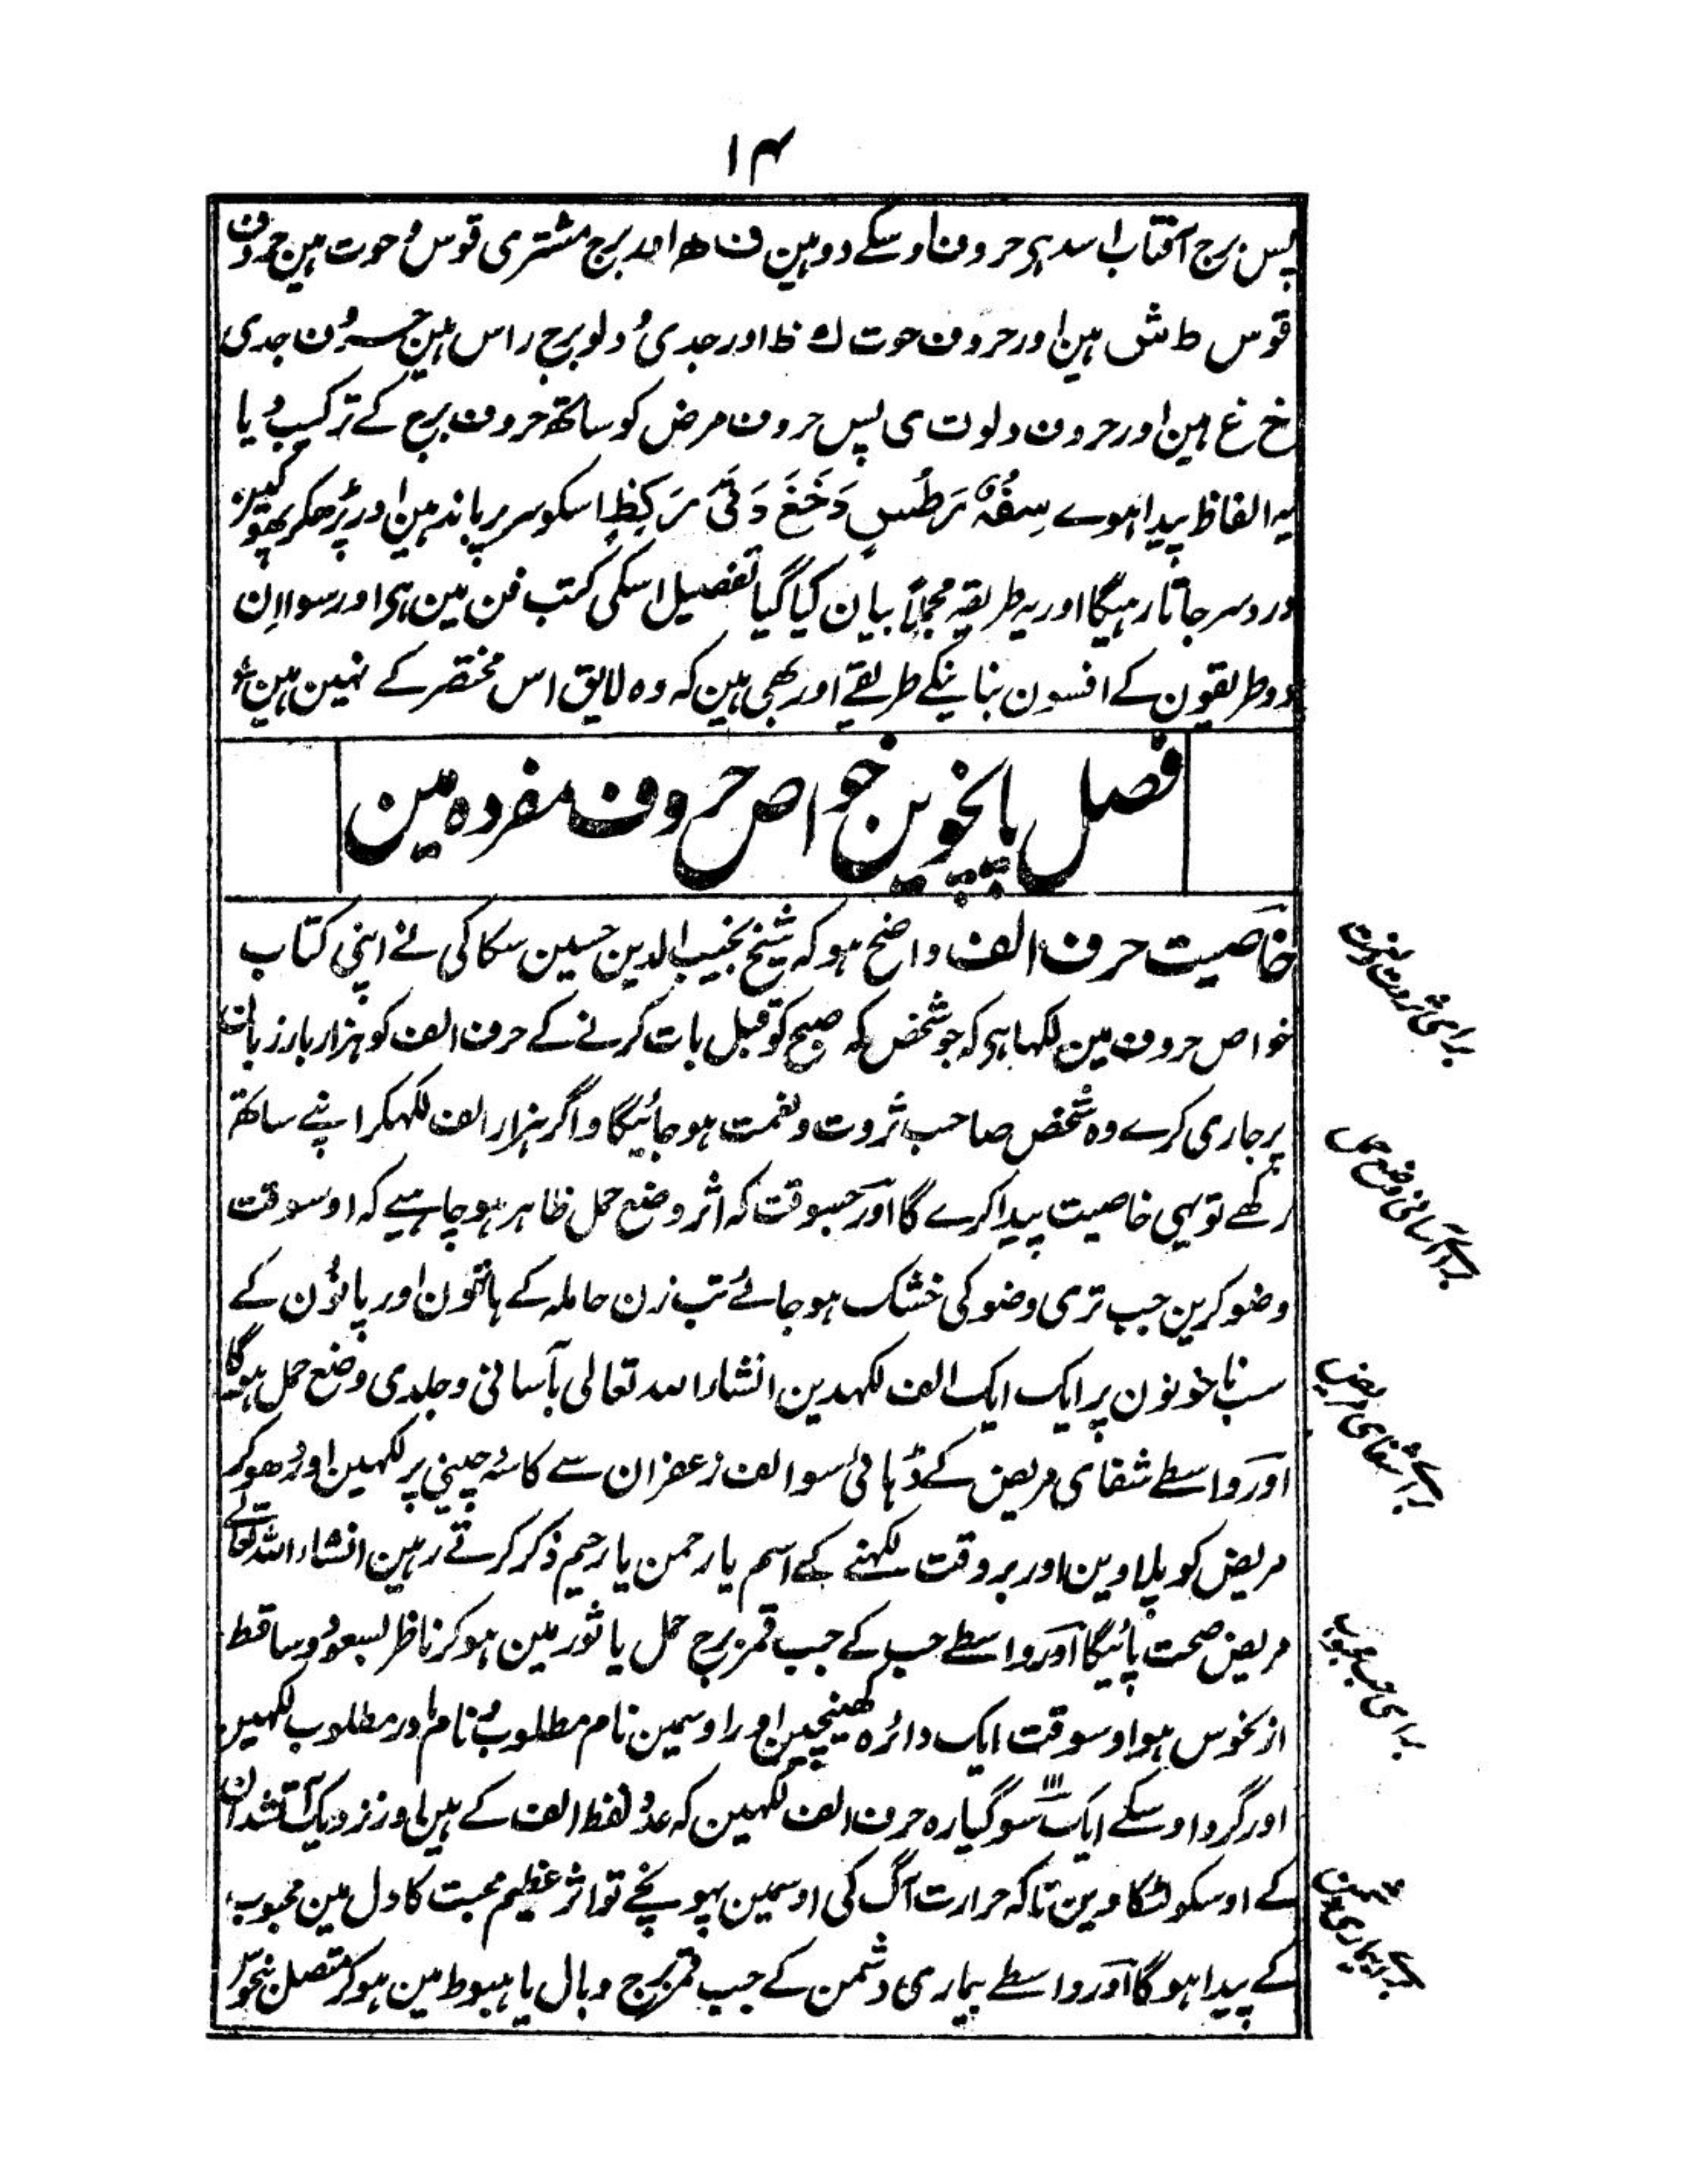 ۱۴
پس برج آفتاب اسد ہی حروف اوسکے دو ہین ف ھ اور برج مشتری قوس و حوت ہین حروف
قوس ط ش ہین اور حروف حوت ک ظ اور جدی و دلو برج راس ہین حروف جدی
خ غ ہین اور حروف دلو ت ی پس حروف مرض کو ساتھ حروف برج کے ترکیب دیا
یہ الفاظ پیدا ہوے سِفُہْ رَطُشٍ دَخَغَ دَتَیَ رَکِظٍ اسکو سر پر باندہین اور پڑھکر پھونکین
درد سر جاتا رہیگا اور یہ طریقہ مجملاً بیان کیا گیا تفصیل اسکی کتب فن مین ہی اور سوا اِن
دو طریقون کے افسون بنانیکے طریقے اور بھی ہین کہ وہ لایق اس مختصر کے نہین ہین
فصل پانچوین خواص حروف مفردہ مین
خاصیت حرف الف واضح ہو کہ شیخ نجیب الدین حسین سکاکی نے اپنی کتاب
خواص حروف مین لکہا ہی کہ جو شخص کہ صبح کو قبل بات کرنے کے حرف الف کو ہزار بار زبان
پر جاری کرے وہ شخص صاحب ثروت و نعمت ہو جائیگا و اگر ہزار الف لکہکر اپنے ساتھ
رکھے تو یہی خاصیت پیدا کرے گا اور جسوقت کہ اثر وضع حمل ظاہر ہو چاہیے کہ اوسوقت
وضو کرین جب تری وضو کی خشک ہو جائے تب زن حاملہ کے ہاتھون اور پانؤن کے
سب ناخونون پر ایک ایک الف لکہدین انشاء اللہ تعالی بآسانی و جلدی وضع حمل ہوگا
اور واسطے شفای مریض کے ڈہائی سو الف زعفران سے کاسۂ چینی پر لکہین اور دھو کر
مریض کو پلاوین اور بروقت لکہنے کے اسم یا رحمن یا رحیم ذکر کرتے رہین انشاء اللہ تعالے
مریض صحت پائیگا اور واسطے حب کے جب قمر برج حمل یا ثور مین ہو کر ناظر بسعود و ساقط
از نحوس ہو اوسوقت ایک دائرہ کھینچین اور اوسمین نام مطلوب و نام مادر مطلوب لکہین
اور گرد اوسکے ایک سو گیارہ ۱۱۱ حرف الف لکہین کہ عدد لفظ الف کے ہین اور نزدیک آتشدان
کے اوسکو لٹکا دین تاکہ حرارت آگ کی اوسمین پہونچے تو اثر عظیم محبت کا دل مین محبوب
کے پیدا ہوگا اور واسطے بیماری دشمن کے جب قمر برج وبال یا ہبوط مین ہو کر متصل بنحوس
برای ثروت و نعمت
برای آسانی وضع حمل
برای شفای مریض
برای حب محبوب
برای بیماری دشمن